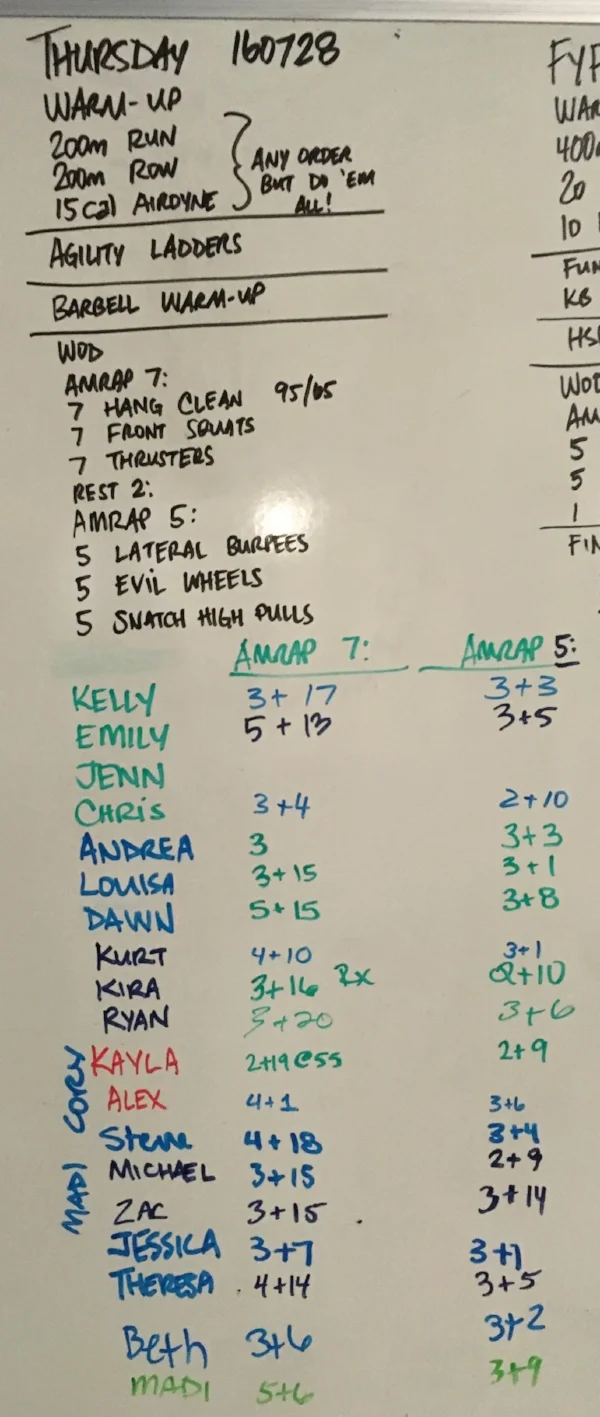 THURSDAY 160728
WARM-UP
200m RUN
200m ROW
15 Cal AIRDYNE
ANY ORDER
BUT DO 'EM
ALL!
AGILITY LADDERS
BARBELL WARM-UP
WOD
AMRAP 7:
7 HANG CLEAN 95/65
7 FRONT SQUATS
7 THRUSTERS
REST 2:
AMRAP 5:
5 LATERAL BURPEES
5 EVIL WHEELS
5 SNATCH HIGH PULLS
AMRAP 7: AMRAP 5:
KELLY 3+17 3+3
EMILY 5+13 3+5
JENN
CHRIS 3+4 2+10
ANDREA 3 3+3
LOUISA 3+15 3+1
DAWN 5+15 3+8
KURT 4+10 3+1
KIRA 3+16 Rx 2+10
RYAN 3+20 3+6
KAYLA 2+19@55 2+9
ALEX 4+1 3+6
Steve 4+18 3+4
MICHAEL 3+15 2+9
ZAC 3+15 3+14
JESSICA 3+7 3+1
THERESA 4+14 3+5
Beth 3+6 3+2
MADI 5+6 3+9
MADI CORY
WAR
400m
20
10
FUN
KB
HS
WOD
AM
5
5
1
FIN